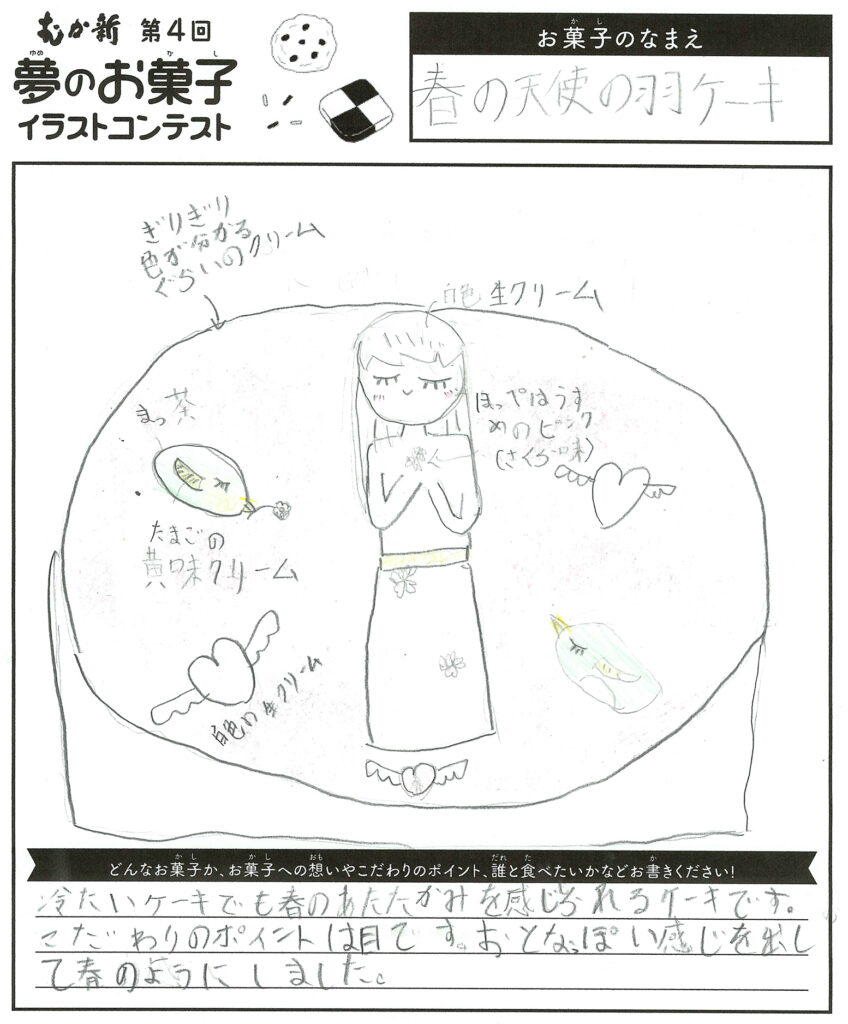 むか新 第4回
夢のお菓子
ゆめ かし
イラストコンテスト
お菓子のなまえ
かし
春の天使の羽ケーキ
ぎりぎり
色が分かる
ぐらいのクリーム
白色 生クリーム
まっ茶
ほっぺはうす
めのピンク
(さくら味)
たまごの
黄味クリーム
白色の生クリーム
どんなお菓子か、お菓子への想いやこだわりのポイント、誰と食べたいかなどお書きください!
かし かし おも だれ た か
冷たいケーキでも春のあたたかみを感じられるケーキです。
こだわりのポイントは目です。おとなっぽい感じを出し
て春のようにしました。